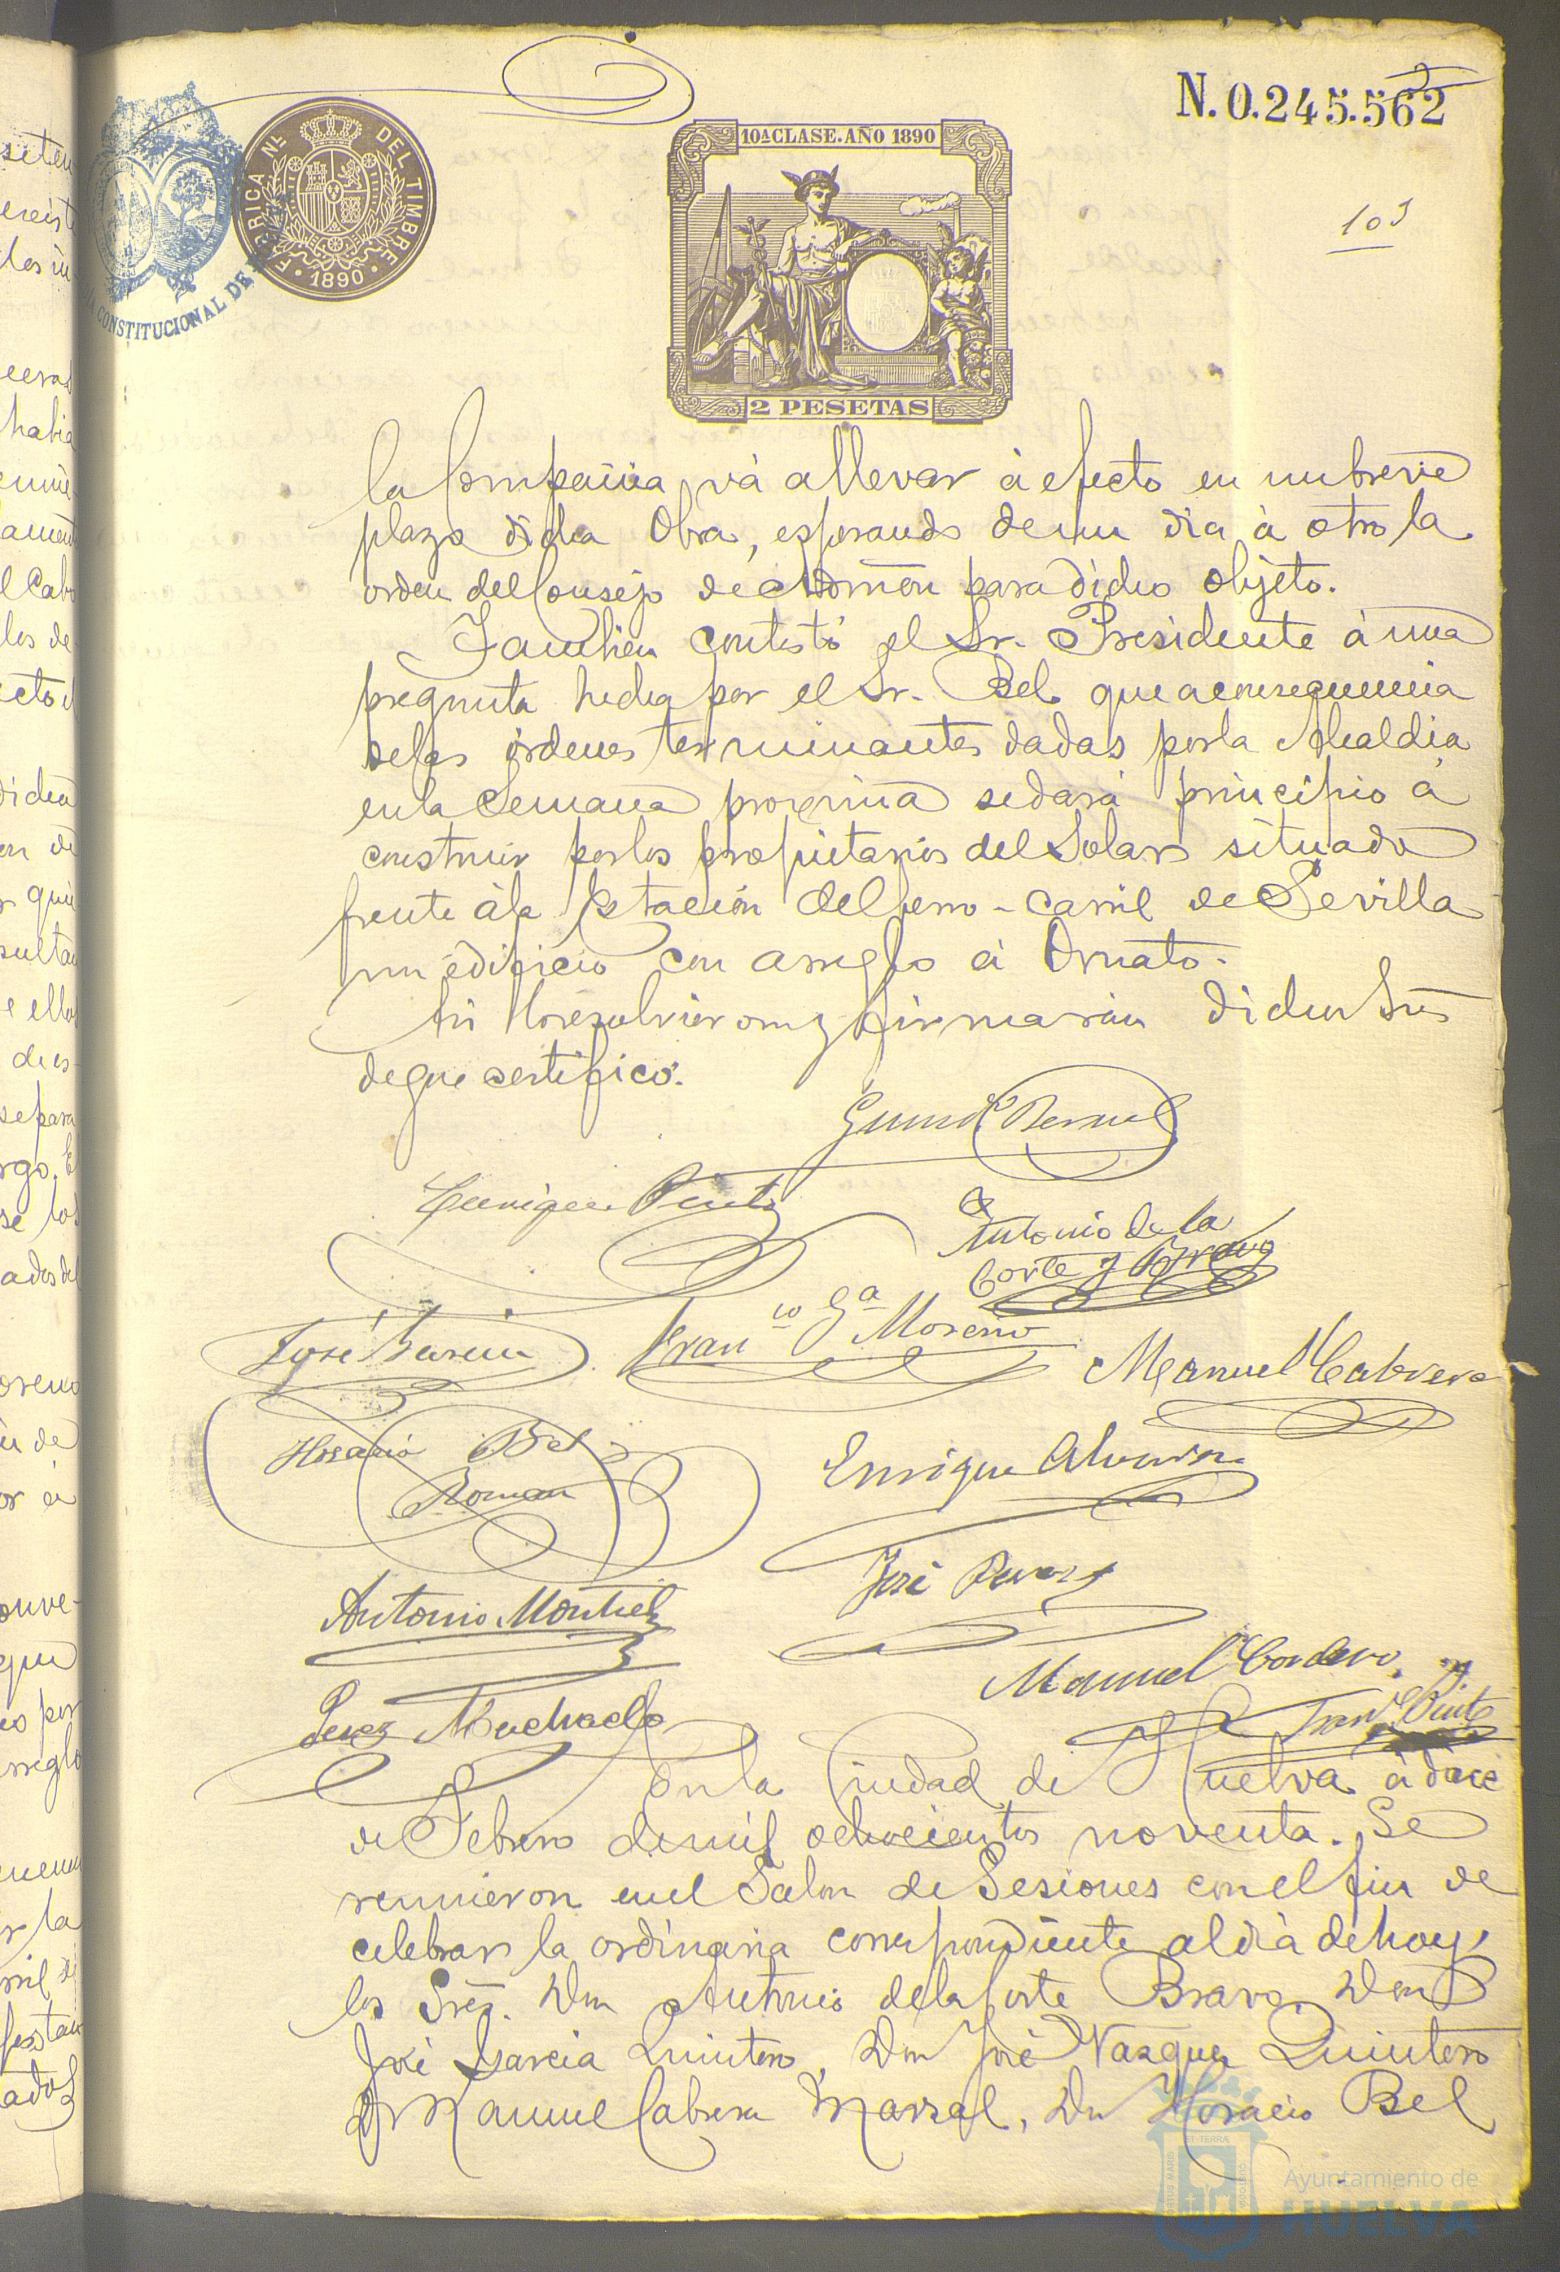 N. 0.245.562
10ª CLASE. AÑO 1890
FABRICA Nl. DEL TIMBRE
1890
CONSTITUCIONAL DE
2 PESETAS
103
la Compañia vá allevar á efecto en un breve
plazo dicha Obra, esperando deun dia á otro la
orden del Consejo de Admón para dicho objeto.
Tambien contestó el Sr. Presidente á una
pregunta hecha por el Sr. Bel que a consequencia
delas órdenes terminantes dadas porla Alcaldia
enla Semana proxima sedará principio á
construir porlos propietarios del Solar situado
frente ála Estación del ferro-carril de Sevilla
un edificio con arreglo á Ornato.
Asi lo resolvieron y firmarán dichos Sres
deque certifico.
Gumdo Bernal
Enrique Pinto
Antonio de la
Corte y Bravo
José Garcia
Franco Ga Moreno
Manuel Cabrera
Horacio Bel
Roman
Enrique
Antonio Montiel
José
Manuel Cordero
Perez Machado
Franco Pinto
En la Ciudad de Huelva á doce
de Febrero demil ochocientos noventa. Se
reunieron enel Salon de Sesiones con el fin de
celebrar la ordinaria correspondiente aldia dehoy,
los Sres. Don Antonio dela Corte Bravo, Don
José Garcia Quintero, Don José Vazquez Quintero
Dn Manuel Cabrera Marzal, Dn Horacio Bel
Ayuntamiento de
HUELVA